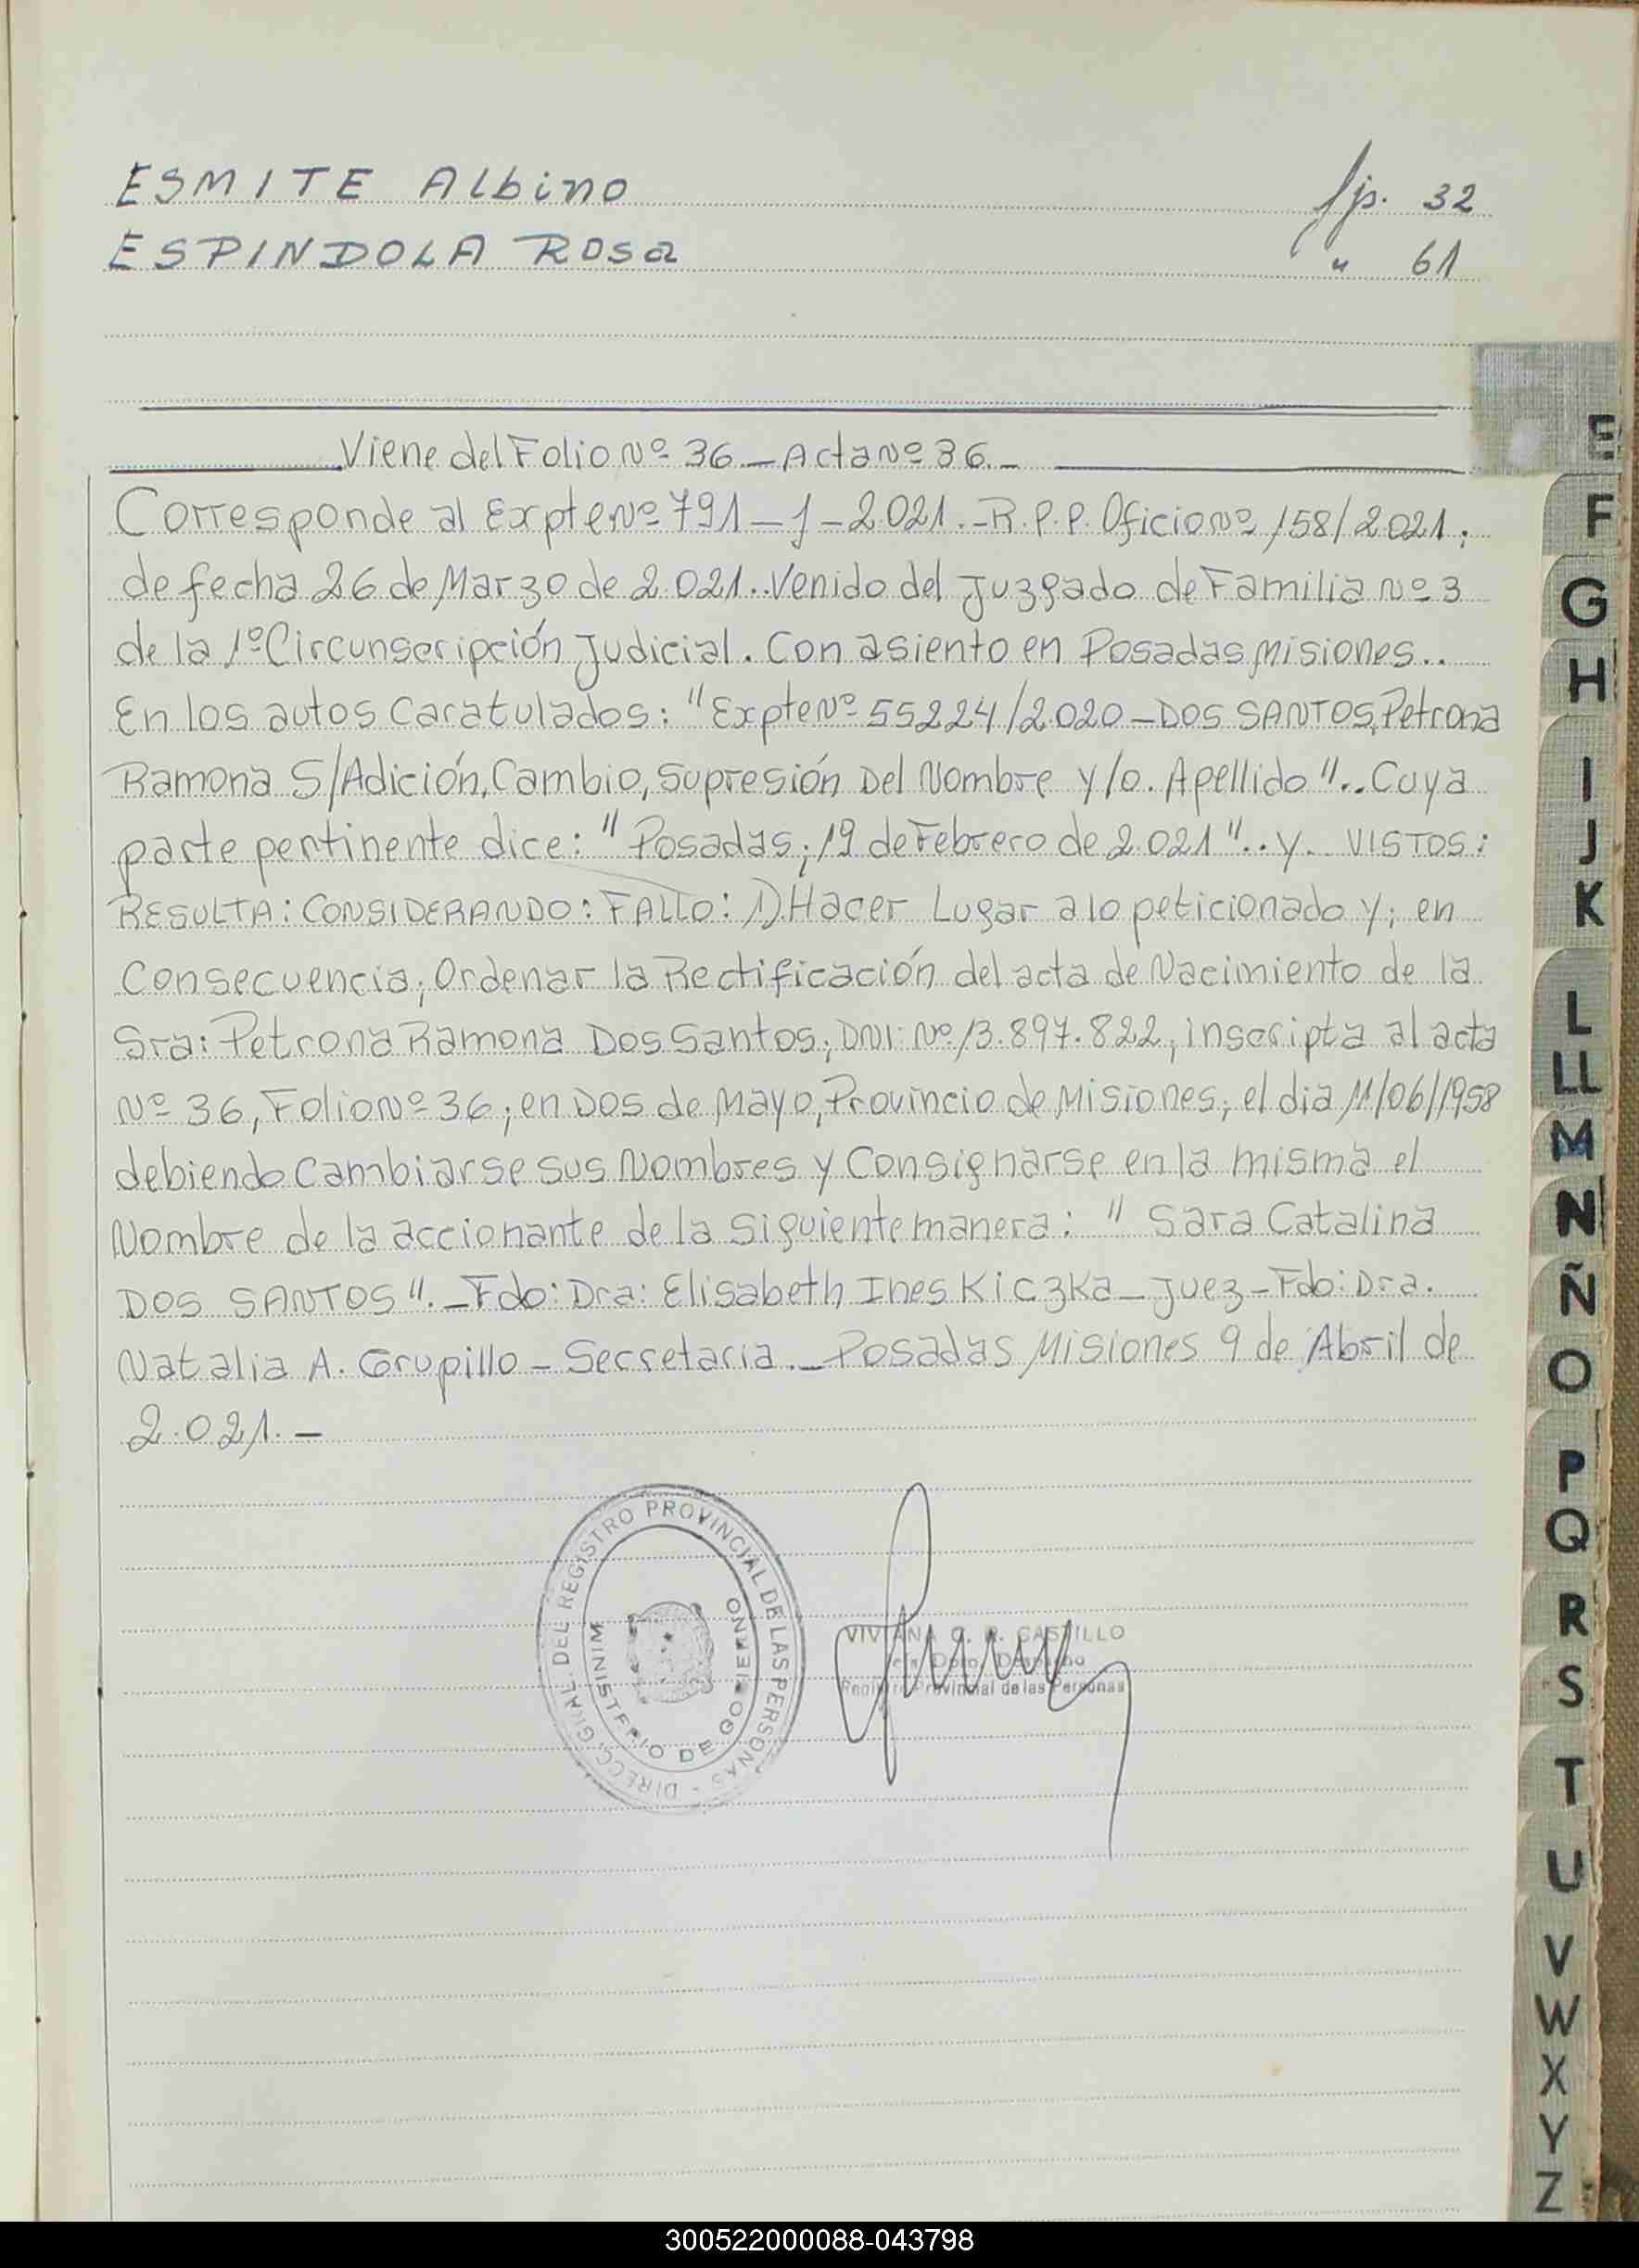 ESMITE Albino fjs. 32
ESPINDOLA ROSa " 61
Viene del Folio Nº 36 _ Acta Nº 36._
Corresponde al Expte Nº 791 _ J _ 2.021._ R.P.P. Oficio Nº 158/2021;
de fecha 26 de Marzo de 2.021.. Venido del Juzgado de Familia Nº 3
de la 1º Circunscripción Judicial. Con asiento en Posadas Misiones..
En los autos Caratulados: "Expte Nº 55224/2020 _ DOS SANTOS, Petrona
Ramona S/Adición, Cambio, Supresión Del Nombre y/o. Apellido".. Cuya
parte pertinente dice: "Posadas; 19 de Febrero de 2.021".. y.. VISTOS:
RESULTA: CONSIDERANDO: FALLO: 1) Hacer Lugar a lo peticionado y; en
Consecuencia; Ordenar la Rectificación del acta de Nacimiento de la
Sra: Petrona Ramona Dos Santos; DNI: Nº 13.897.822, inscripta al acta
Nº 36, Folio Nº 36; en Dos de Mayo, Provincio de Misiones; el dia 11/06/1958
debiendo Cambiarse sus Nombres y Consignarse en la misma el
Nombre de la accionante de la siguiente manera: " Sara Catalina
DOS SANTOS"._ Fdo: Dra: Elisabeth Ines Kiczka _ Juez _ Fdo: Dra.
Natalia A. Grupillo _ Secretaria._ Posadas Misiones 9 de Abril de
2.021._
DIRECC. GRAL. DEL REGISTRO PROVINCIAL DE LAS PERSONAS -
MINISTERIO DE GOBIERNO
VIVIANA CASTILLO
Dpto. Despacho
Registro Provincial de las Personas
E
F
G
H
I
J
K
L
LL
M
N
Ñ
O
P
Q
R
S
T
U
V
W
X
Y
Z
300522000088-043798